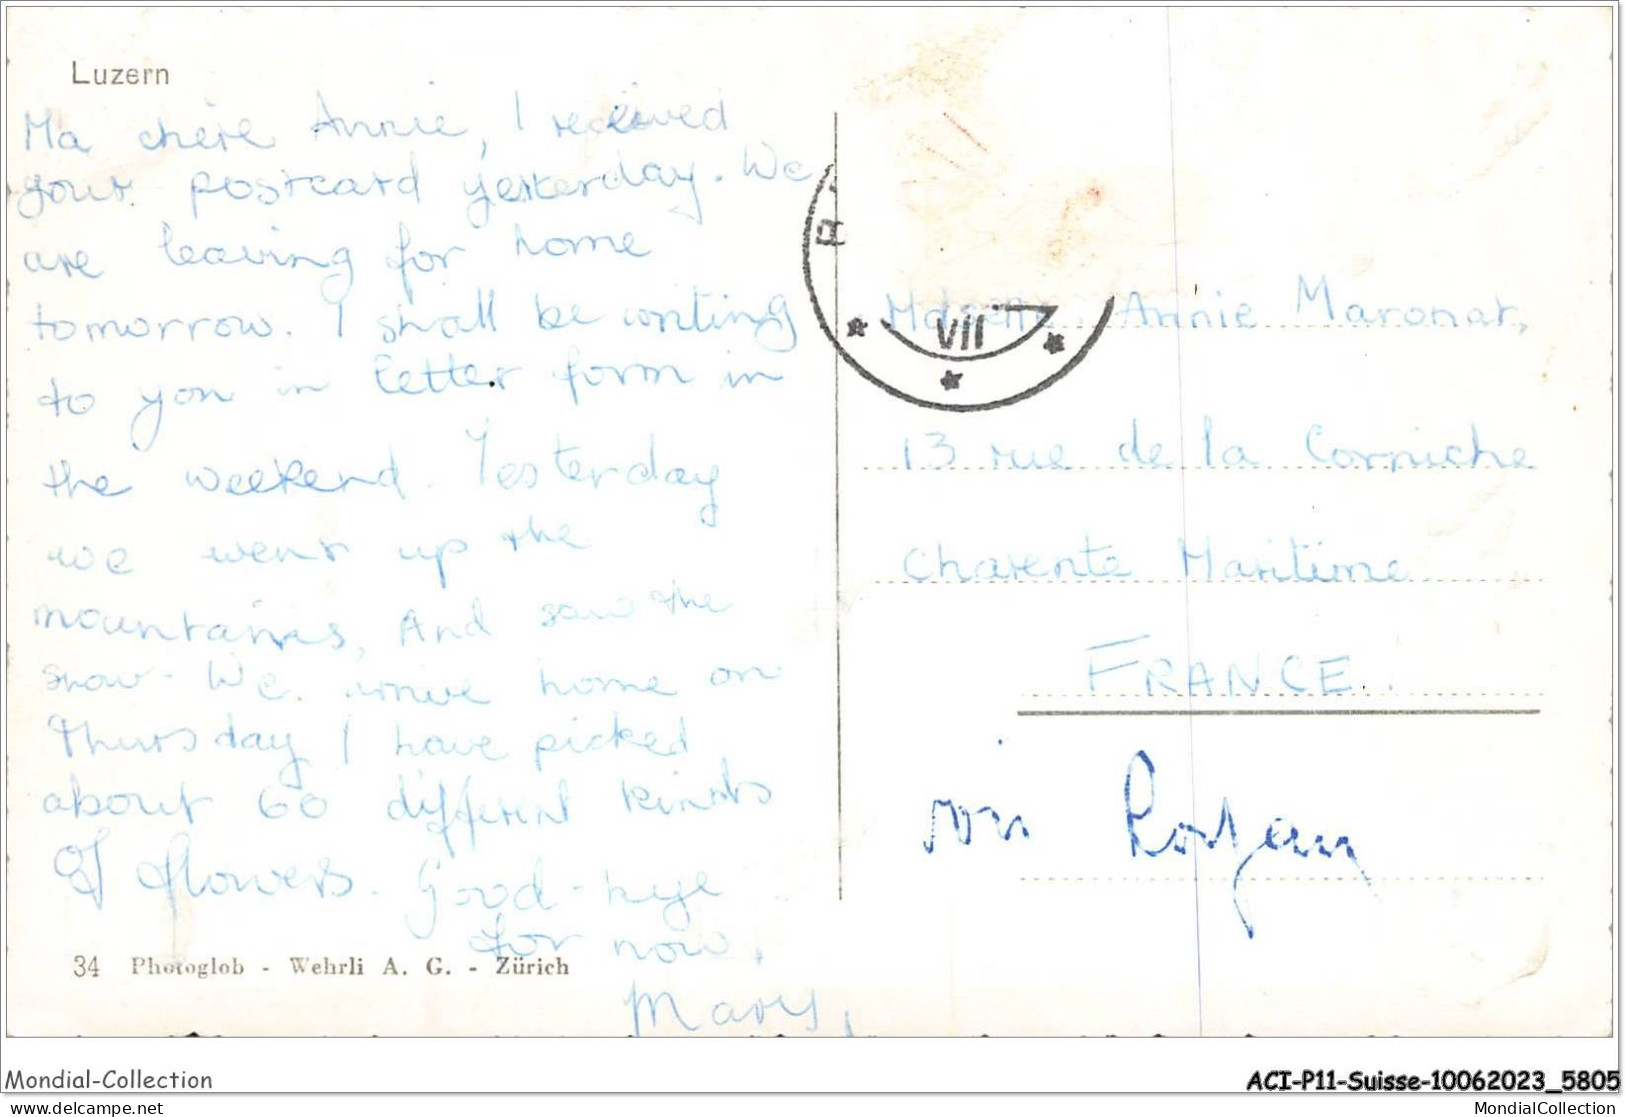 Luzern
Ma chère Annie, I received
your postcard yesterday. We
are leaving for home
tomorrow. I shall be writing
to you in letter form in
the weekend. Yesterday
we went up the
mountains, And saw the
snow. We arrive home on
Thursday I have picked
about 60 different kinds
Of flowers. Good-bye
for now,
Mary,
34 Photoglob - Wehrli A. G. - Zürich
VII
Annie Maronat,
13 rue de la Corniche
Charente Maritime
FRANCE.
Mondial-Collection
ACI-P11-Suisse-10062023_5805
www.delcampe.net
MondialCollection